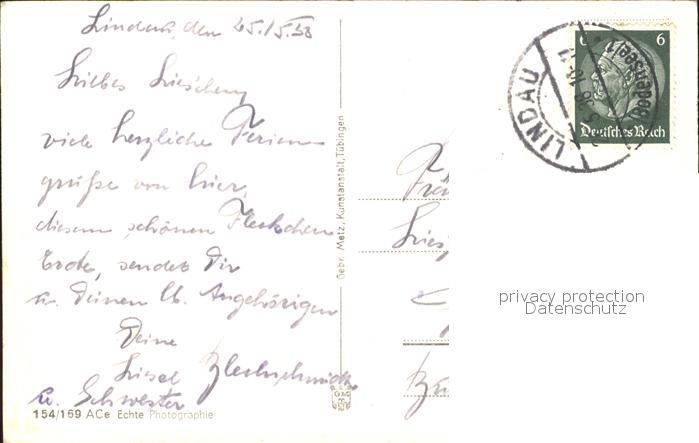 Lindau, den 25./5.38
Liebes Lieschen,
viele herzliche Ferien-
grüße von hier,
diesem schönen Fleckchen
Erde, sendet Dir
u. Deinen lb. Angehörigen
Deine
Liesel Blechschmidt
u. Schwester
154/169 ACe Echte Photographie
Gebr. Metz, Kunstanstalt, Tübingen
6
Deutsches Reich
LINDAU
(Bodensee)
privacy protection
Datenschutz